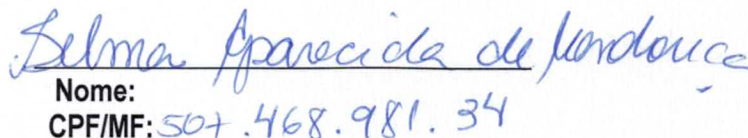 Selma Aparecida de Mendonça
Nome:
CPF/MF: 507.468.981.34